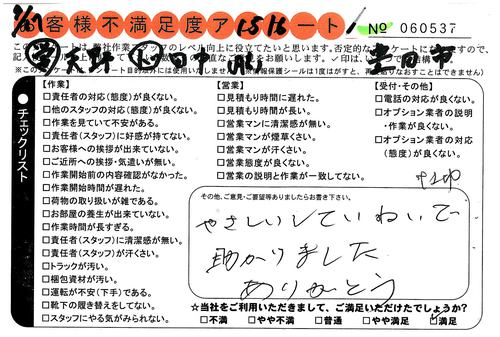 お客様不満足度アンケート
№ 060537
【作業】
□責任者の対応(態度)が良くない。
□他のスタッフの対応(態度)が良くない。
□作業を見ていて不安がある。
□責任者(スタッフ)に好感が持てない。
□お客様への挨拶が出来ていない。
□ご近所への挨拶・気遣いが無い。
□作業開始前の内容確認がなかった。
□作業開始時間が遅れた。
□荷物の取り扱いが雑である。
□お部屋の養生が出来ていない。
□作業時間が長すぎる。
□責任者(スタッフ)に清潔感が無い。
□責任者(スタッフ)が汗くさい。
□トラックが汚い。
□梱包資材が汚い。
□運転が不安(下手)である。
□靴下の履き替えをしてない。
□スタッフにやる気がみられない。
【営業】
□見積もり時間に遅れた。
□見積もり時間が長い。
□営業マンに清潔感が無い。
□営業マンが煙草くさい。
□営業マンが汗くさい。
□営業態度が良くない。
□営業の説明と作業が一致してない。
【受付・その他】
□電話の対応が良くない。
□オプション業者の説明
・作業が良くない。
□オプション業者の対応
(態度)が良くない。
チェックリスト
その他、ご意見・ご要望等ありましたらお書き下さい。
やさしいしていねいで
助かりました
ありがとう
☆当社をご利用いただきまして、ご満足いただけたでしょうか?
□不満 □やや不満 □普通 □やや満足 ☑満足